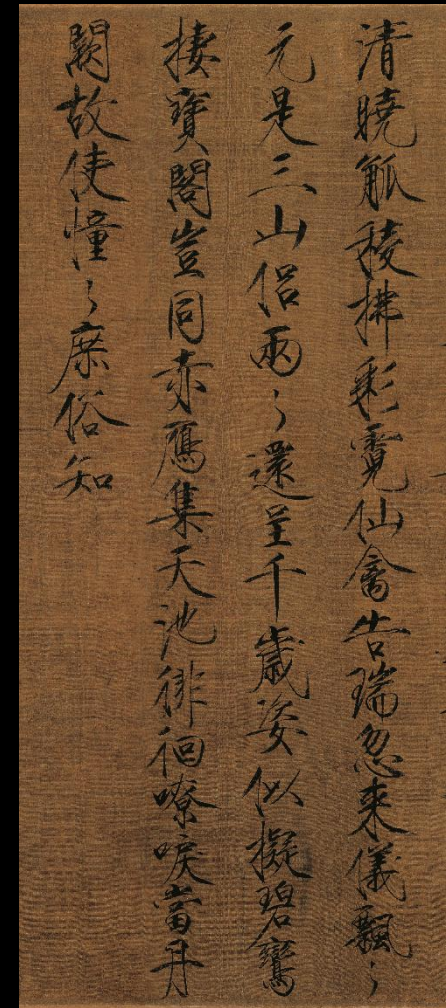 清曉觚稜拂彩霓仙禽告瑞忽來儀飄〻
元是三山侶兩〻還呈千歲姿似擬碧鸞
棲寶閣豈同赤鴈集天池徘徊嘹唳當丹
闕故使憧〻庶俗知